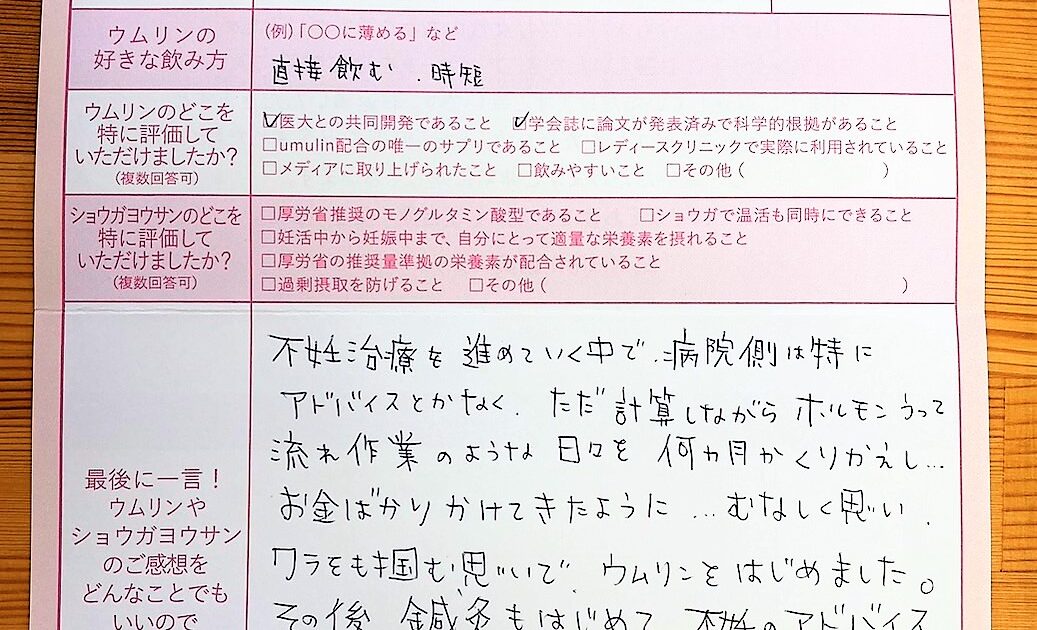 ウムリンの
好きな飲み方
(例)「〇〇に薄める」など
直接飲む、時短
ウムリンのどこを
特に評価して
いただけましたか?
(複数回答可)
☑医大との共同開発であること ☑学会誌に論文が発表済みで科学的根拠があること
□umulin配合の唯一のサプリであること □レディースクリニックで実際に利用されていること
□メディアに取り上げられたこと □飲みやすいこと □その他( )
ショウガヨウサンのどこを
特に評価して
いただけましたか?
(複数回答可)
□厚労省推奨のモノグルタミン酸型であること □ショウガで温活も同時にできること
□妊活中から妊娠中まで、自分にとって適量な栄養素を摂れること
□厚労省の推奨量準拠の栄養素が配合されていること
□過剰摂取を防げること □その他( )
最後に一言!
ウムリンや
ショウガヨウサン
のご感想を
どんなことでも
いいので
不妊治療を進めていく中で、病院側は特に
アドバイスとかなく、ただ計算しながらホルモンうって
流れ作業のような日々を何ヵ月かくりかえし…
お金ばかりかけてきたように…むなしく思い、
ワラをも掴む思いで、ウムリンをはじめました。
その後、鍼灸もはじめて、不妊のアドバイス